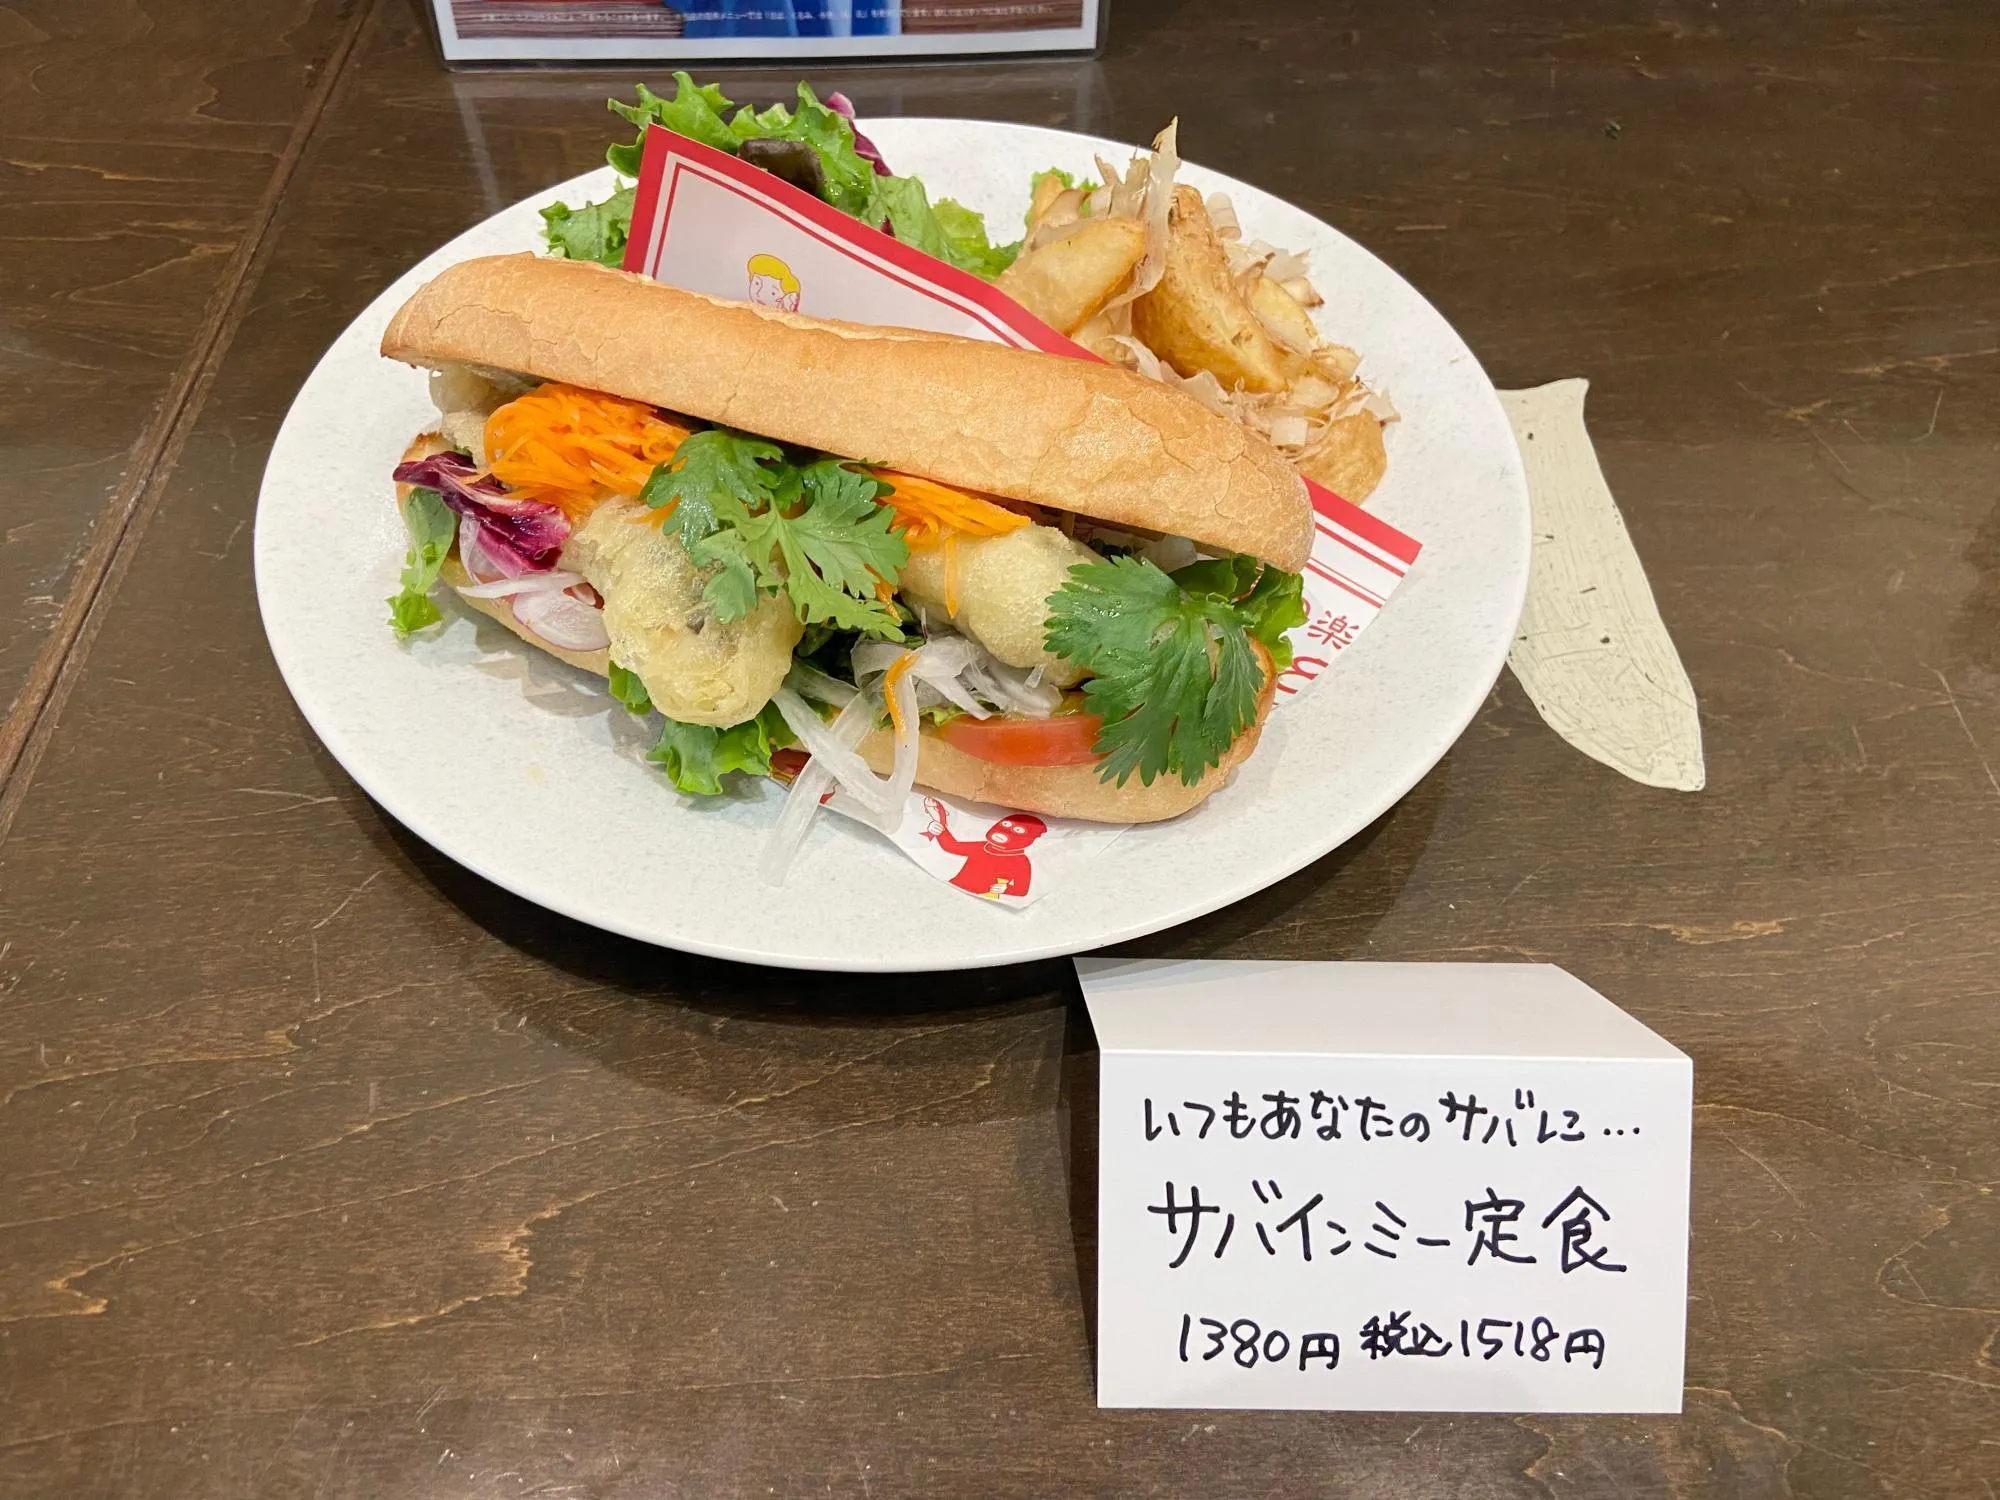 いつもあなたのサバに…
サバインミー定食
1380円 税込1518円
楽